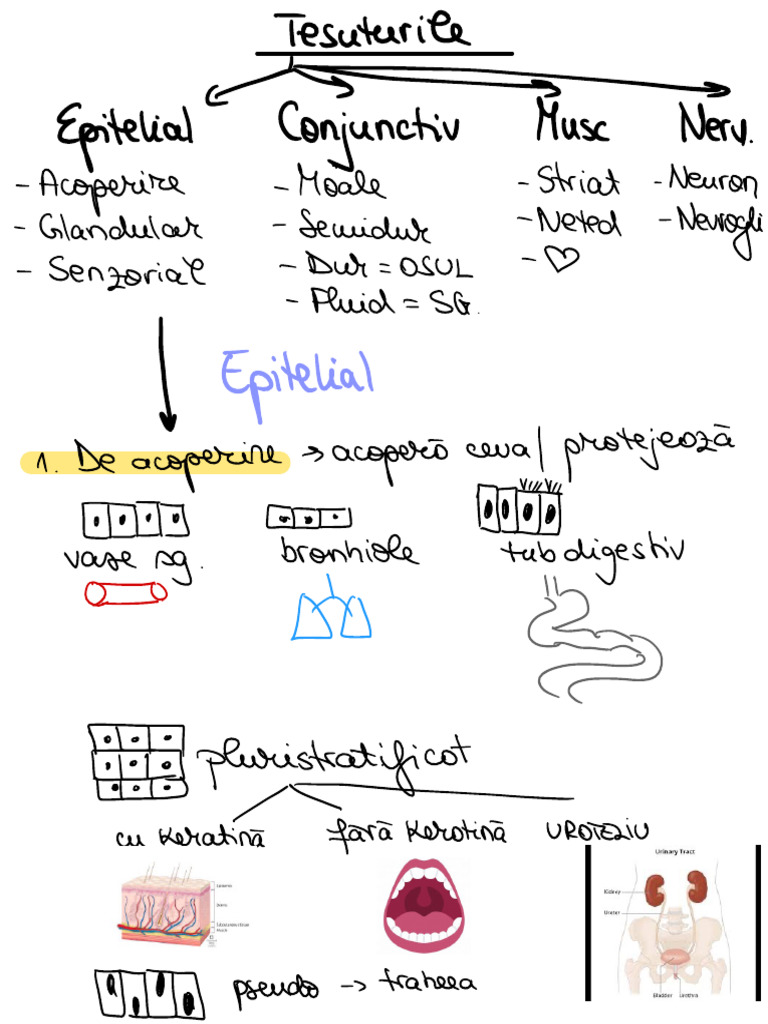 Tesuturile
Epitelial Conjunctiv Musc Nerv.
- Acoperire - Moale - Striat - Neuron
- Glandular - Semidur - Neted - Nevrogli
- Senzorial - Dur = OSUL - ♡
- Fluid = SG.
Epitelial
1. De acoperire → acoperă ceva / protejează
vase sg. bronhiole tub digestiv
pluristratificat
cu keratină fără keratină UROTELIU
Urinary Tract
Kidney
Ureter
Bladder Urethra
pseudo → traheea